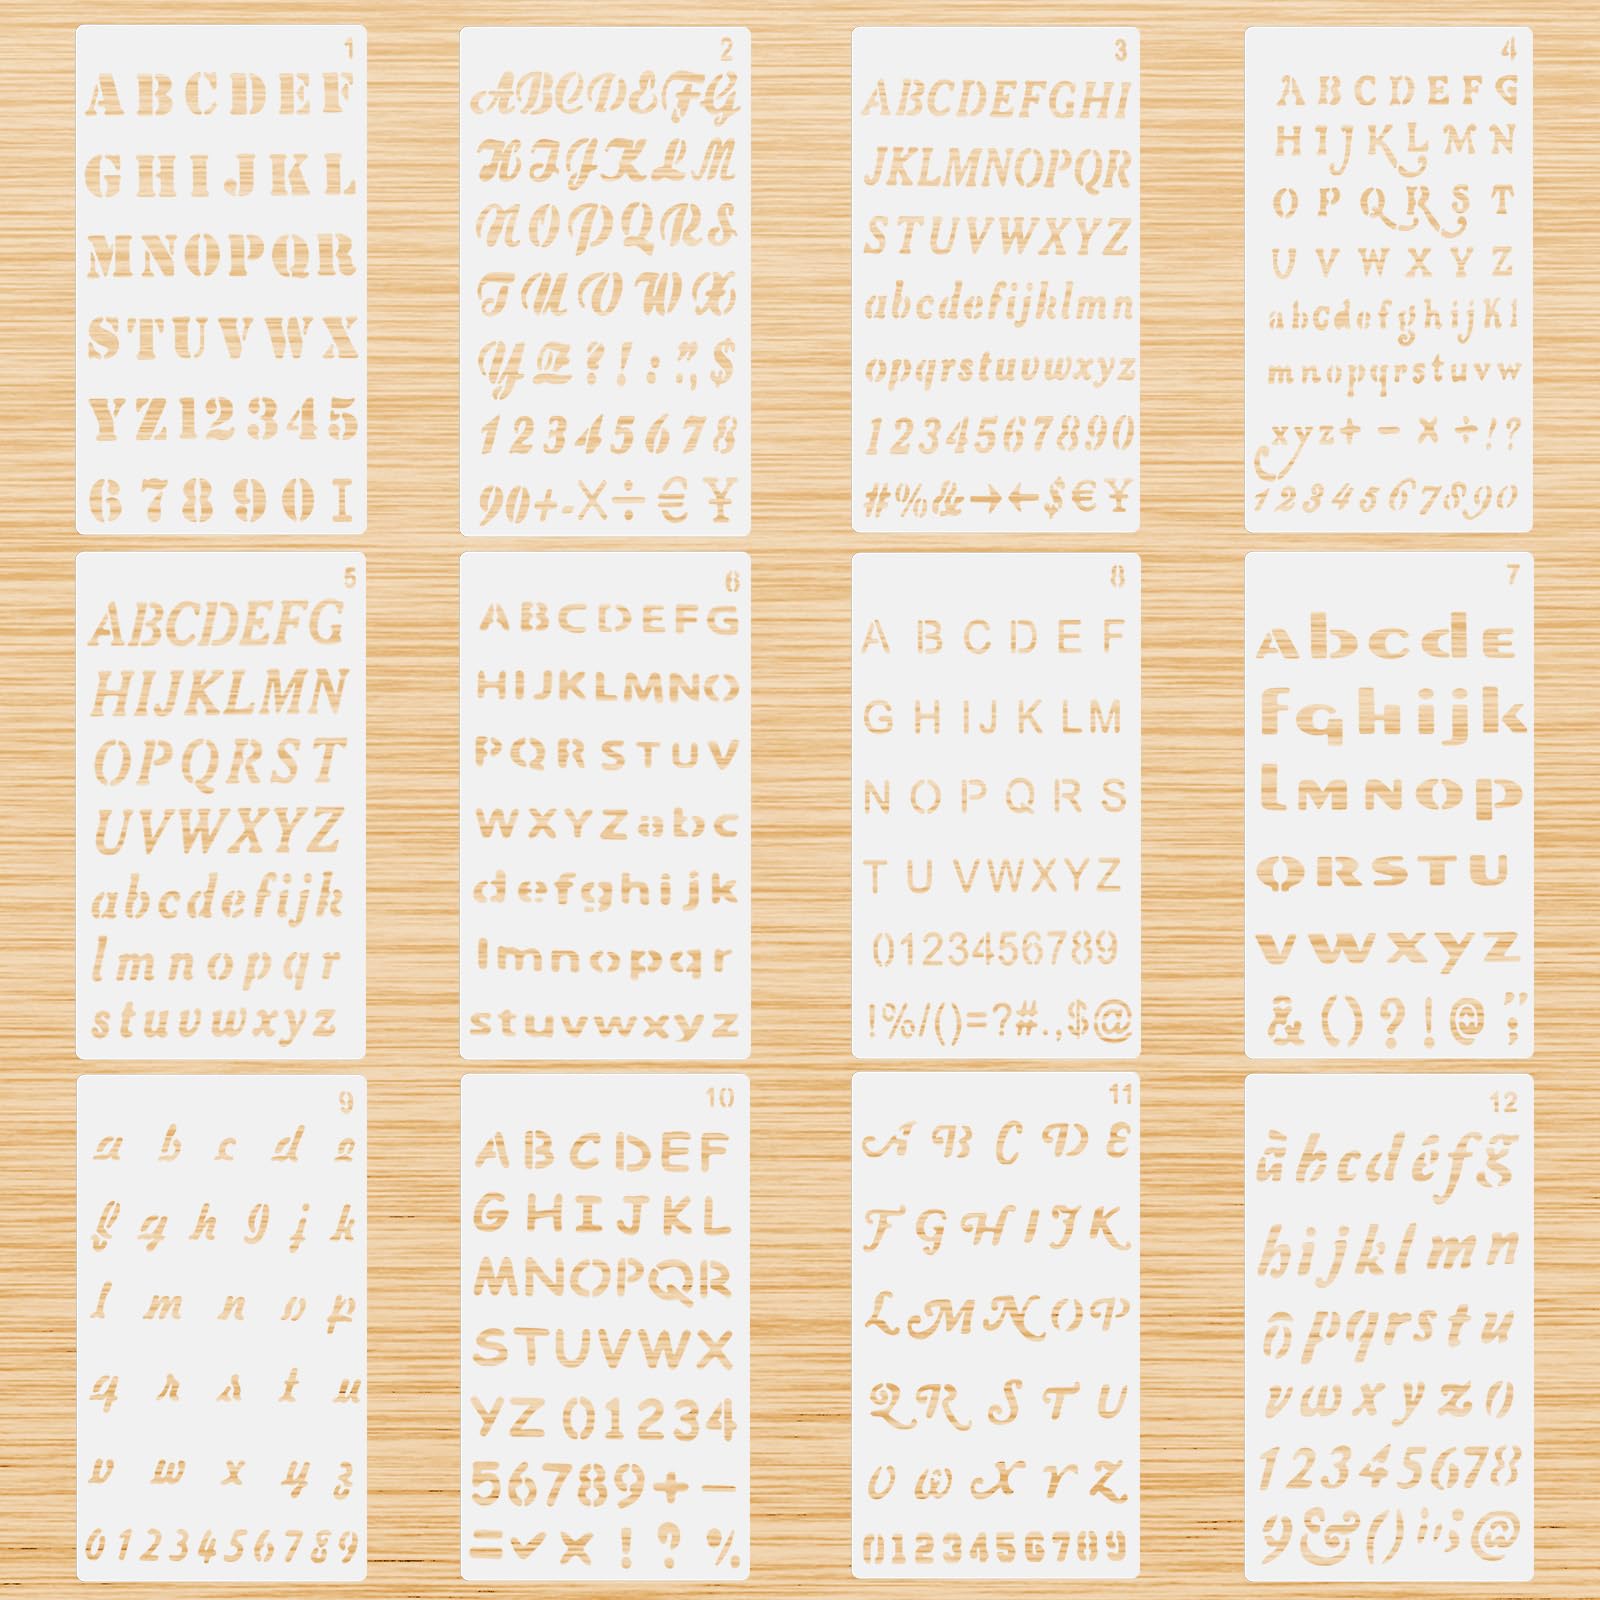 1
ABCDEF
GHIJKL
MNOPQR
STUVWX
YZ12345
67890I
2
ABCDEFG
HIJKLM
NOPQRS
TUVWX
YZ?!:",$
12345678
90+-×÷€¥
3
ABCDEFGHI
JKLMNOPQR
STUVWXYZ
abcdefijklmn
opqrstuvwxyz
1234567890
#%&→←$€¥
4
ABCDEFG
HIJKLMN
OPQRST
UVWXYZ
abcdefghijkl
mnopqrstuvw
xyz+-×÷!?
1234567890
5
ABCDEFG
HIJKLMN
OPQRST
UVWXYZ
abcdefijk
lmnopqr
stuvwxyz
6
ABCDEFG
HIJKLMNO
PQRSTUV
WXYZabc
defghijk
lmnopqr
stuvwxyz
8
A B C D E F
G H I J K L M
N O P Q R S
T U VWXYZ
0123456789
!%/()=?#.,$@
7
AbcdE
fghijk
lMNOp
QRSTU
vwxyz
&()?!@";
9
a b c d e
f g h 9 j k
l m n o p
q r s t u
v w x y z
0123456789
10
ABCDEF
GHIJKL
MNOPQR
STUVWX
YZ 01234
56789+-
=✓×!?%
11
A B C D E
F G H I J K
L M N O P
Q R S T U
V W X Y Z
0123456789
12
ãbcdéfğ
hijklmn
ôpqrstu
vwxyz0
12345678
9&()¡!;@